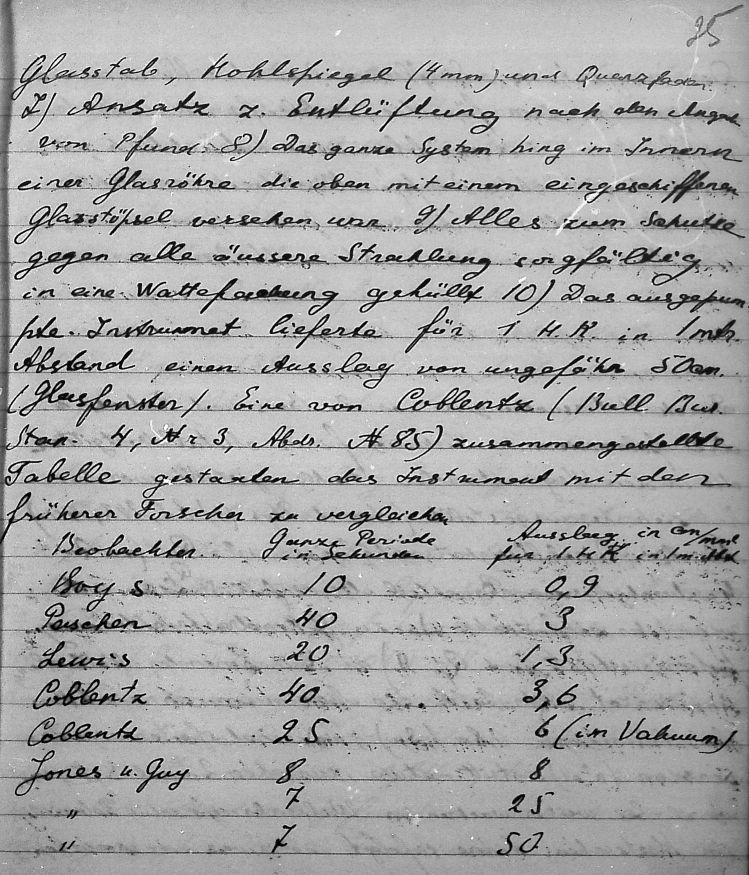 25
Glasstab, Hohlspiegel (4mm) und Quarzfaden.
7) Ansatz z. Entlüftung nach den Angab
von Pfund. 8) Das ganze System hing im Innern
einer Glasröhre die oben mit einem eingeschiffenen
Glasstöpsel versehen war. 9) Alles zum Schutze
gegen alle äussere Strahlung sorgfältig
in eine Wattepackung gehüllt 10) Das ausgepum
pte Instrumnet lieferte für 1 H.K. in 1 mtr.
Abstand einen Ausslag von ungefähr 50cm.
(Glasfenster). Eine von Coblentz (Bull. Bur.
Stan. 4, Nr 3, Abdr. № 85) zusammengestellte
Tabelle gestatten das Instrument mit den
früherer Forscher zu vergleichen
Beobachter. Ganze Periode in Sekunden Ausslag in cm/mm² für 1 H.K. in 1 m Abst
Boys 10 0,9
Paschen 40 3
Lewis 20 1,3
Coblentz 40 3,6
Coblentz 25 6 (im Vakuum)
Jones u. Guy 8 8
" 7 25
" 7 50